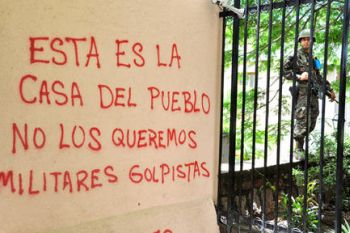 ESTA ES LA
CASA DEL PUEBLO
NO LOS QUEREMOS
MILITARES GOLPISTAS